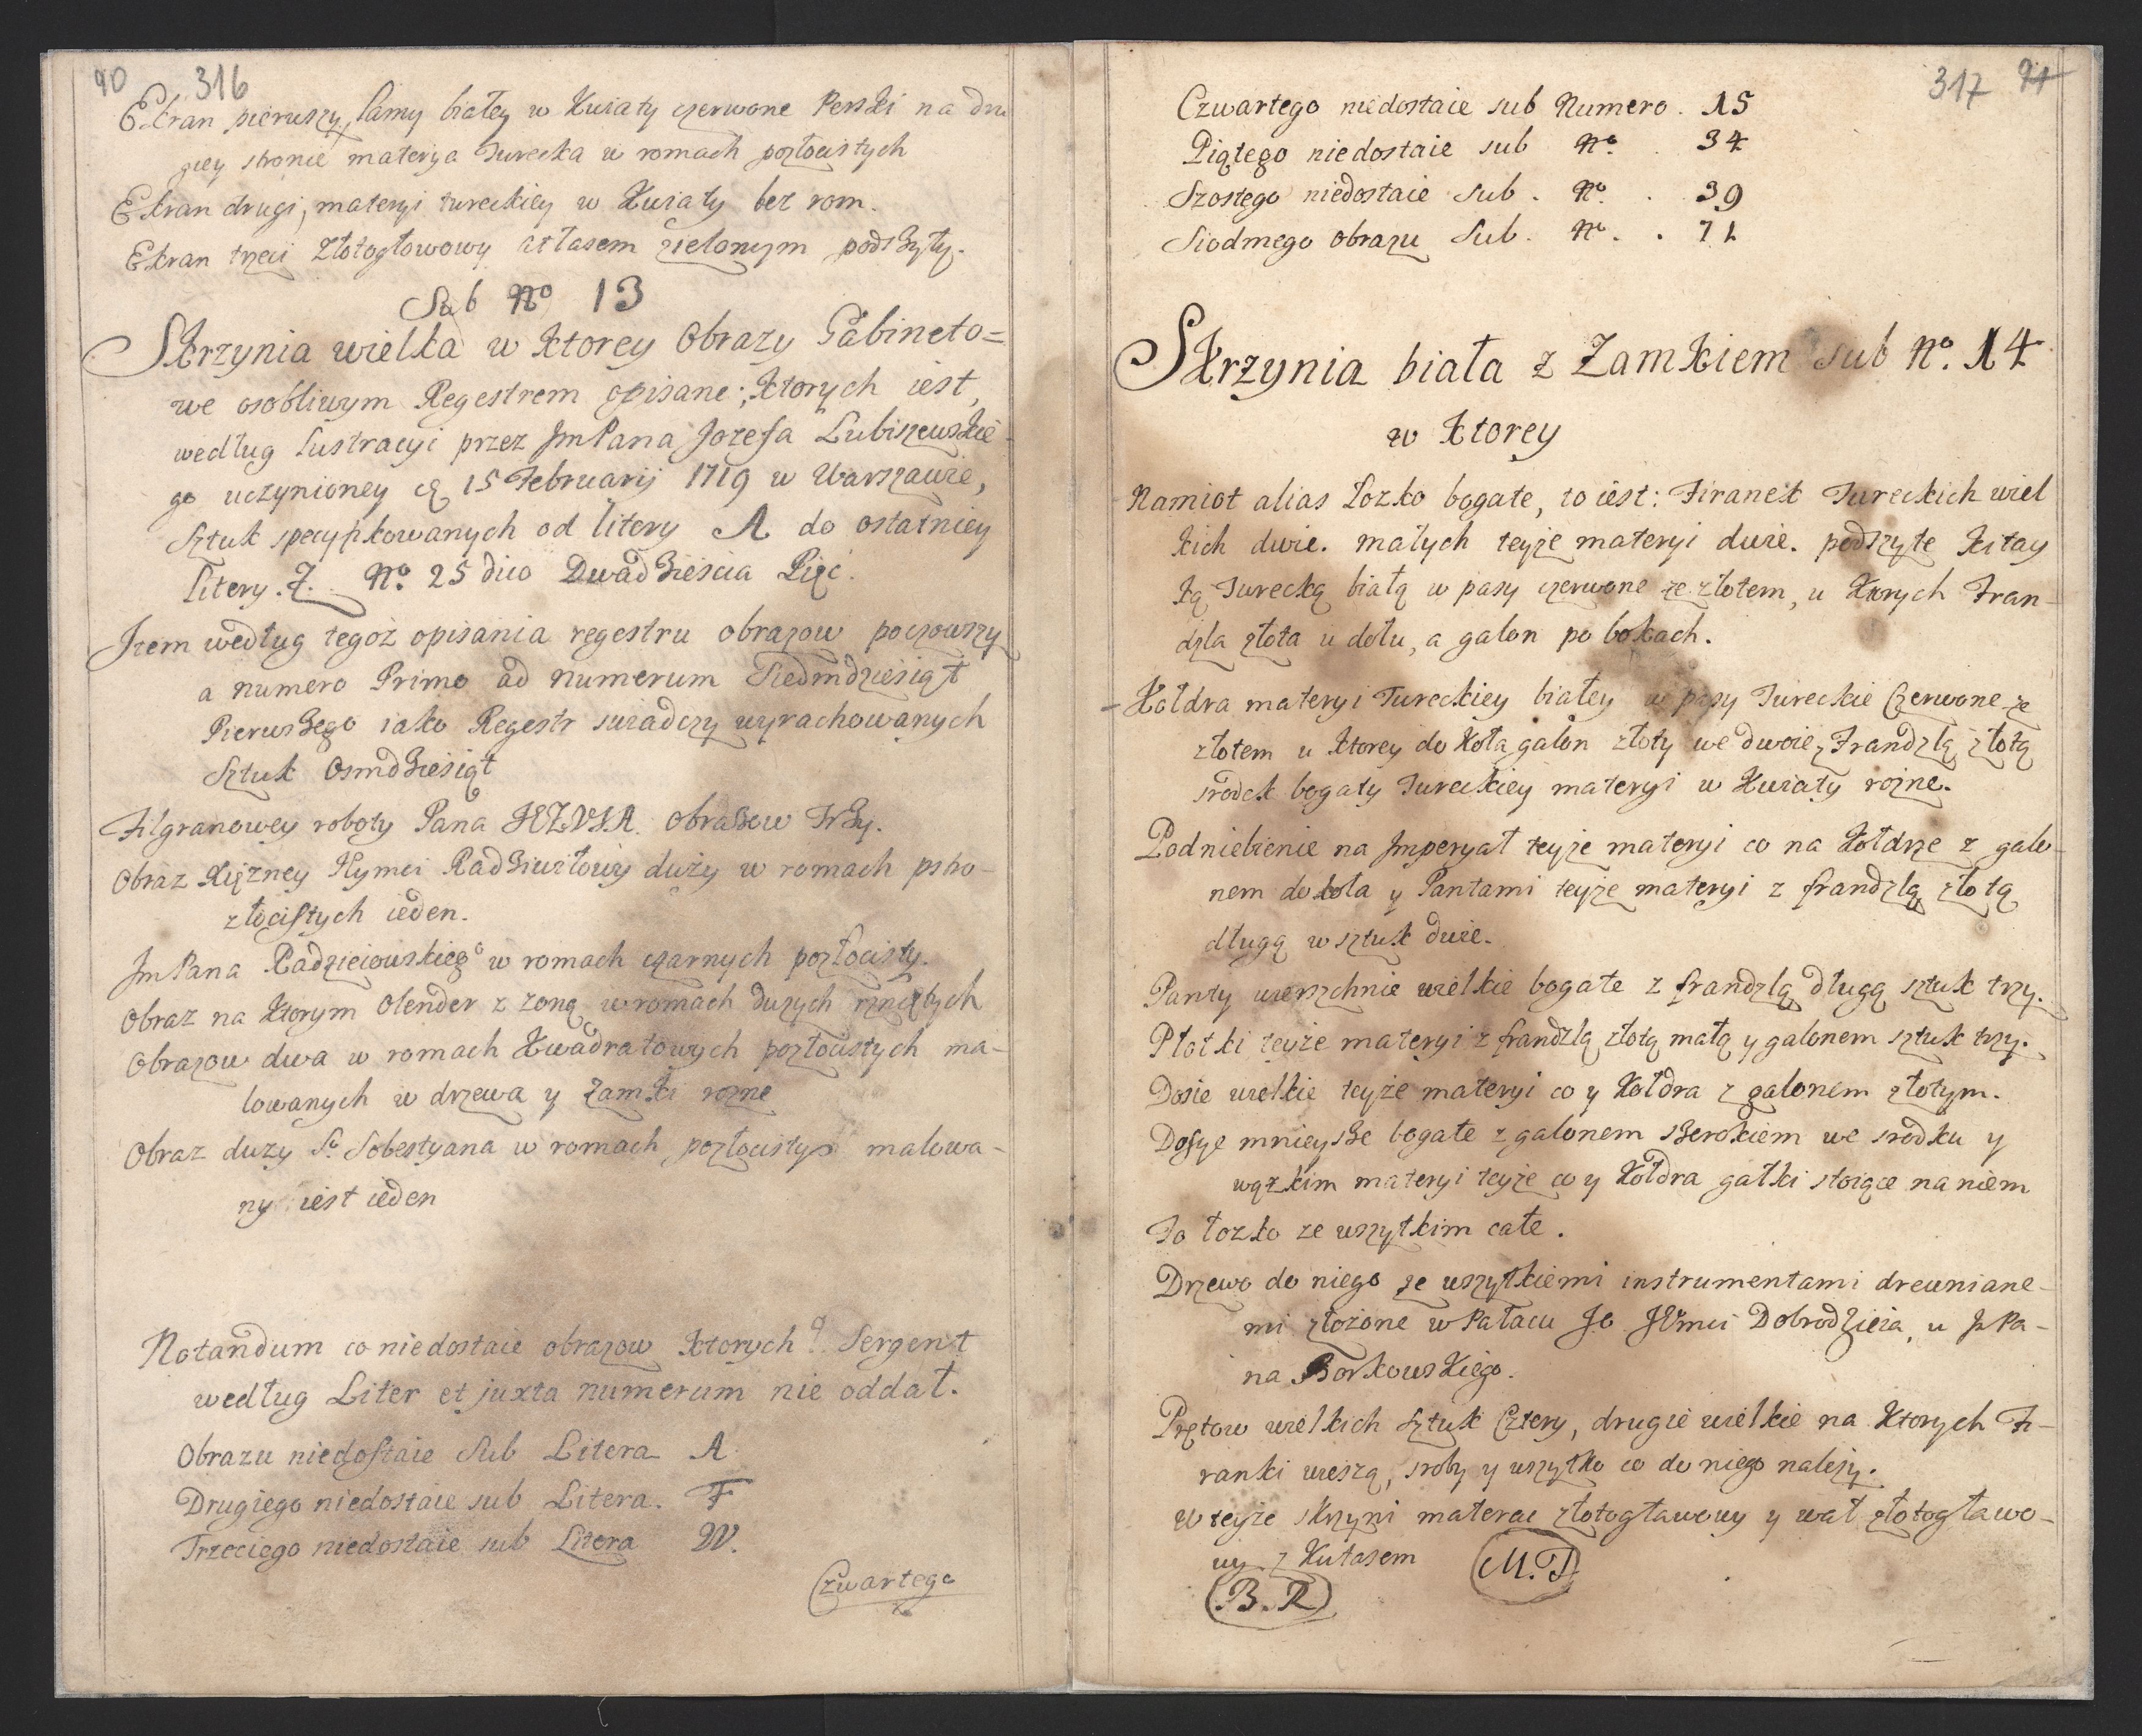 90 316
Ekran pierwszy, lamy białey w Kwiaty czerwone Perski na dru
giey stronie materya Turecka w romach pozłocistych
Ekran drugi, materyi tureckiey w Kwiaty bez rom.
Ekran trzeci złotogłowowy atłasem zielonym podszyty.
Sub No 13
Skrzynia wielka w Ktorey Obrazy Gabineto=
we osobliwym Regestrem opisane; Ktorych iest,
według lustracyi przez Jm Pana Jozefa Lubiszewskie
go uczynioney 15 Februarij 1719 w Warszawie,
Sztuk specyfikowanych od litery A do ostatniey
litery. Z. No. 25 dico Dwadzieścia Pięć.
Item według tegoż opisania regestru obrazow począwszy
a numero Primo ad numerum Siedmdziesiąt
Pierwszego iako Regestr swiadczy wyrachowanych
Sztuk Osmdziesiąt
Filgranowey roboty Pana JEZUSA. obrazow Trzy.
Obraz Xiężney Jeymci Radziwiłłowey duży w romach pstro-
złocistych ieden.
Jm Pana Radzieiowskiego w romach czarnych pozłocisty.
Obraz na Ktorym Olender z zoną w romach duzych rzniętych
Obrazow dwa w romach Kwadratowych pozłocistych ma-
lowanych w drzewa y Zamki rozne
Obraz duzy S. Sobestyana w romach pozłocistych malowa-
ny iest ieden
Notandum co niedostaie obrazow Ktorych P. Sergent
według Liter et juxta numerum nie oddał.
Obrazu niedostaie Sub Litera A
Drugiego niedostaie sub Litera. F
Trzeciego niedostaie sub Litera W.
Czwartego
317 91
Czwartego niedostaie sub Numero. 15
Piątego niedostaie sub No. . 34
Szostego niedostaie sub. No. . 39
Siodmego obrazu Sub. No. . 71
Skrzynia biała z Zamkiem sub No. 14
w Ktorey
Namiot alias Łozko bogate, to iest: Firanek Tureckich wiel
kich dwie. małych teyże materyi dwie. podszyte Kitay
ką Turecką białą w pasy czerwone ze złotem, u Ktorych Fran-
dzla złota u dołu, a galon po bokach.
Kołdra materyi Tureckiey białey w pasy Tureckie Czerwone ze
złotem u Ktorey do Koła galon złoty we dwoie, z Frandzlą złotą
srodek bogaty Tureckiey materyi w Kwiaty rozne.
Podniebienie na Imperyał teyże materyi co na Kołdrze z galo-
nem do koła y Pantami teyże materyi z frandzlą złotą
długą w sztuk dwie.
Panty wierzchnie wielkie bogate z frandzlą długą sztuk trzy.
Płatki teyże materyi z frandzlą złotą małą y galonem sztuk trzy.
Dosie wielkie teyże materyi co y Kołdra z galonem złotym.
Dosye mnieysze bogate z galonem szerokiem we srodku y
wązkim materyi teyże co y Kołdra gałki stoiące na niem
To łozko ze wszytkim całe.
Drzewo do niego ze wszytkiemi instrumentami drewniane-
mi złożone w Pałacu Jo Jmci Dobrodzieia, u J Pa-
na Borkowskiego.
Prętow wielkich Sztuk Cztery, drugie wielkie na Ktorych Fi-
ranki wieszą, sroby y wszytko co do niego należy.
W teyże skrzyni materac złotogławowy y wał złotogławo-
wy z Kutasem
M.T.
B.R